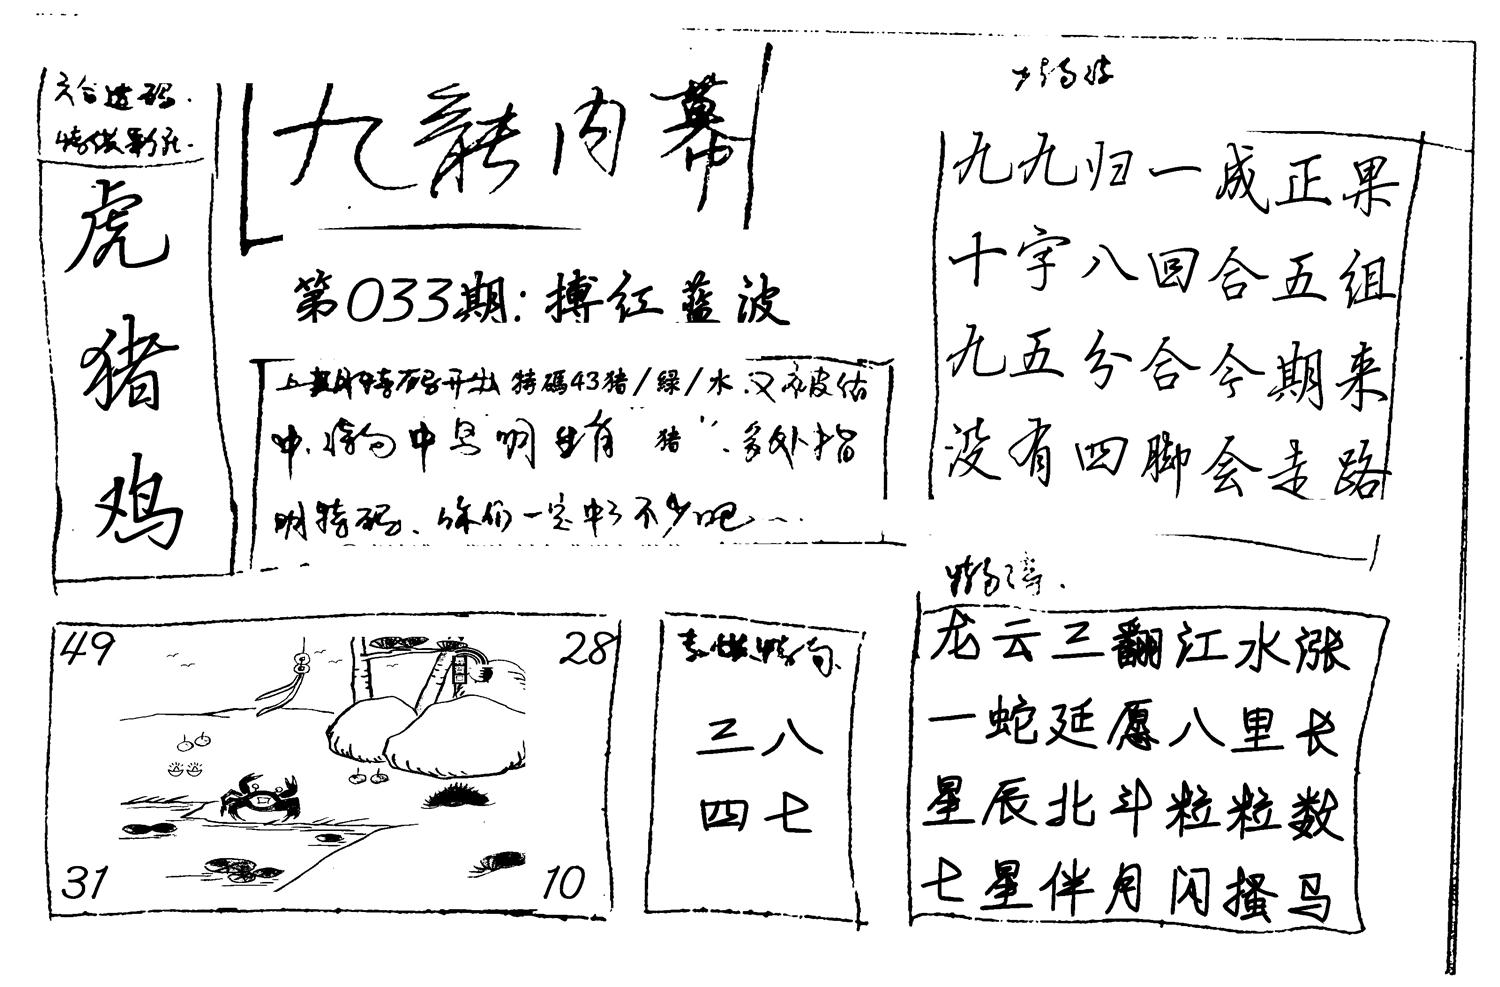 六合透码.
虎
猪
鸡
九龍内幕
第033期:搏红蓝波
上期特码开出 特碼43猪/緑/水.又被估
中.特句中早明显有"猪".多处指
明特码、你们一定中了不少吧...
九九归一成正果
十字八回合五组
九五分合今期来
没有四脚会走路
49
28
31
10
三八
四七
龙云三翻江水涨
一蛇延愿八里长
星辰北斗粒粒数
七星伴月闪搔马